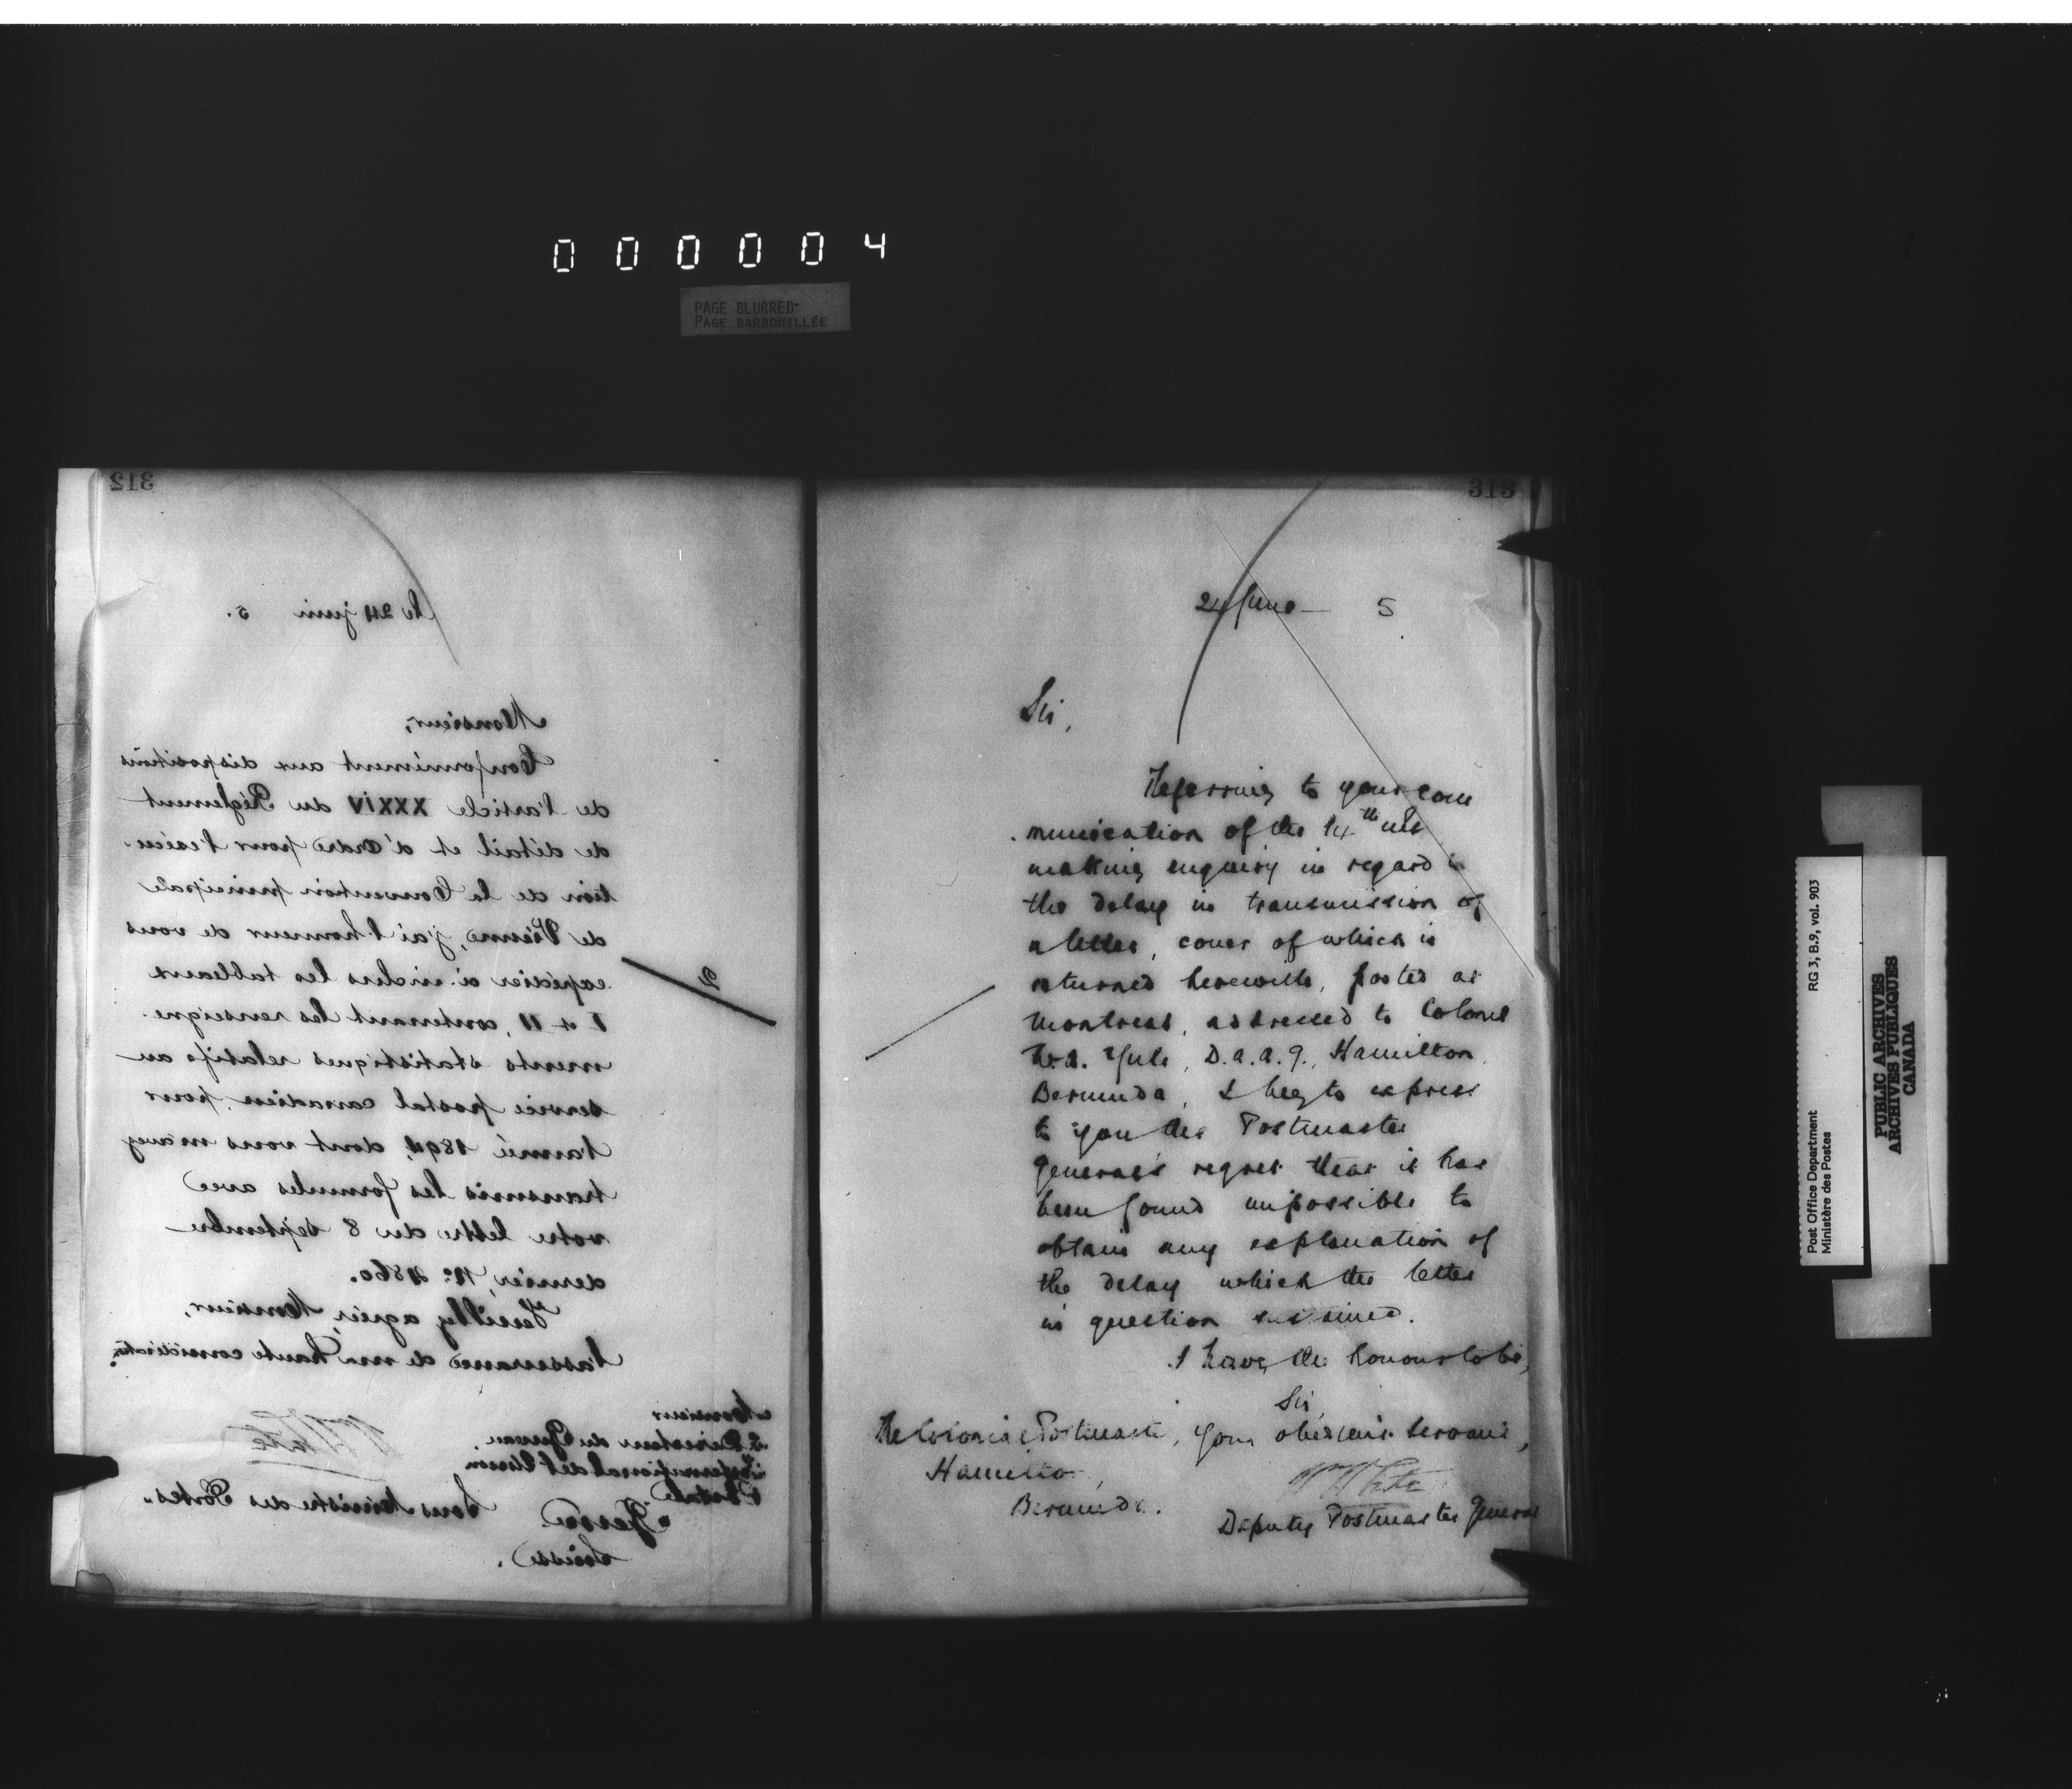 000004
PAGE BLURRED
PAGE BARBOUILLÉE
312
le 24 juin 5.
Monsieur,
Conformément aux dispositions
de l'article XXXIV du Réglement
de détail et d'ordre pour l'exécu-
tion de la Convention principale
de Vienne, j'ai l'honneur de vous
expédier ci-inclus les tableaux
I et II, contenant les renseigne-
ments statistiques relatifs au
service postal canadien, pour
l'année 1894, dont vous m'avez
transmis les formules avec
votre lettre du 8 septembre
dernier, No. 4860.
Veuillez agréer, Monsieur,
l'assurance de ma haute considération.
Monsieur
Le Directeur du Bureau
International de l'Union
Postale
Berne
Suisse.
WWhite
Sous Ministre des Postes.
2
313
24 June 5
Sir,
Referring to your com
munication of the 14th inst
making enquiry in regard to
the delay in transmission of
a letter, cover of which is
returned herewith, posted at
Montreal, addressed to Colonel
Yule, D.A.A.G., Hamilton
Bermuda, I beg to express
to you the Postmaster
General's regret that it has
been found impossible to
obtain any explanation of
the delay which the letter
in question sustained.
I have the honour to be,
Sir,
Your obedient Servant,
WWhite
Deputy Postmaster General
The Colonial Postmaster,
Hamilton,
Bermuda.
Post Office Department
Ministère des Postes
RG 3, B.9, vol. 903
PUBLIC ARCHIVES
ARCHIVES PUBLIQUES
CANADA